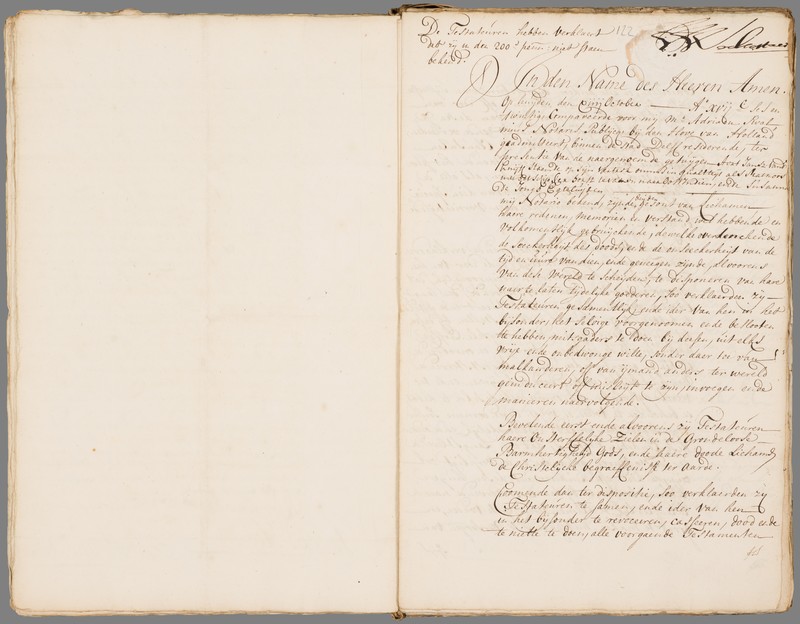 De Testateuren hebben verklaert 122
dat zij in den 200e penn: niet staen
bekend.
In den Name des Heeren Amen.
Op huijden den October
twintigh Compareerde voor mij Mr Adriaen
Notaris Publijcq bij den Hove van Holland
geadmitteert, binnen de stad Delff residerende, ter
presentie van de naergenoemde getuijgen Joost Janse
de Jongh Egteluijden
mij Notario bekend, zijnde gesont van Lichamen
haere redenen, memorien en verstand, wel hebbende en
volkomentlijk gebruijckende, dewelke overdenckende
de seeckerheijt des doods, ende de onseeckerheijt van de
tijd en uure van dien, ende genegen zijnde, alvoorens
van dese wereld te scheijden, te disponeren van hare
naer te laten tijdelijke goederen, Soo verklaerden zij
Testateuren gesamentlijk, ende ider van hen in het
bijsonder het selvige voorgenoomen ende beslooten
te hebben, mitsgaders te doen bij desen, uit elks
vrije ende onbedwonge wille, sonder daer toe van
malkanderen, of van ijmand anders ter wereld
geinduceert of misleijt te zijn, invoegen ende
manieren naervolgende.
Bevelende eerst ende alvoorens zij Testateuren
haere Onsterffelijke Zielen in de Grondeloose
Barmhertigheijd Gods, ende haere doode Lichamen
de Christelijcke begraeffenisse ter aarde.
Coomende dan ter dispositie, Soo verklaerden zij
Testateuren te samen, ende ider van hen
in het bijsonder te revoceren, casseren, dood ende
te niette te doen, alle voorgaende Testamenten